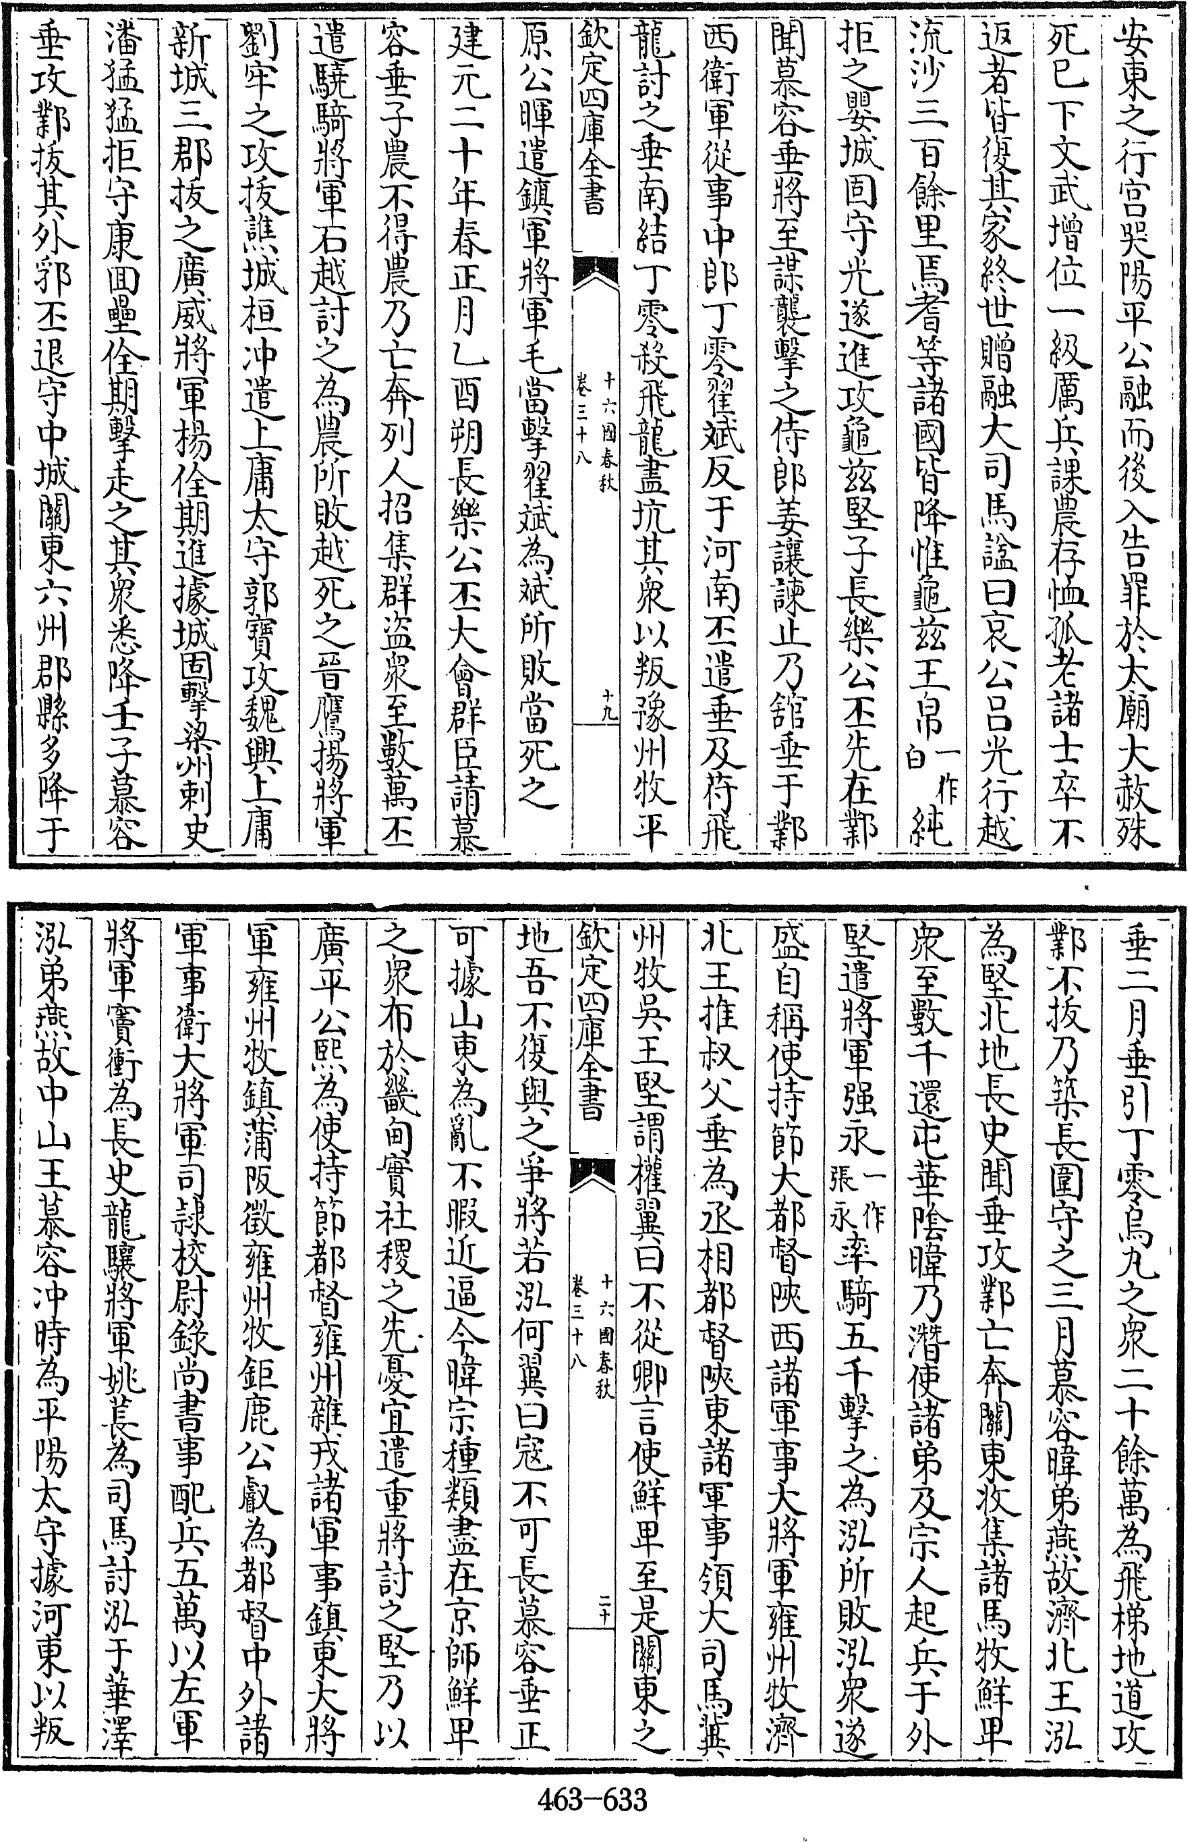 安東之行宫哭陽平公融而後入告罪於太廟大赦殊
死已下文武增位一級厲兵課農存恤孤老諸士卒不
返者皆復其家終世贈融大司馬諡曰哀公吕光行越
流沙三百餘里焉耆等諸國皆降惟龜兹王帛一作白純
拒之嬰城固守光遂進攻龜兹堅子長樂公丕先在鄴
聞慕容垂將至謀襲擊之侍郎姜讓諫止乃舘垂于鄴
西衛軍從事中郎丁零翟斌反于河南丕遣垂及苻飛
龍討之垂南結丁零殺飛龍盡坑其衆以叛豫州牧平
欽定四庫全書
十六國春秋
卷三十八
十九
原公暉遣鎮軍將軍毛當擊翟斌為斌所敗當死之
建元二十年春正月乙酉朔長樂公丕大會群臣請慕
容垂子農不得農乃亡奔列人招集群盜衆至數萬丕
遣驍騎將軍石越討之為農所敗越死之晉鷹揚將軍
劉牢之攻拔譙城桓冲遣上庸太守郭寶攻魏興上庸
新城三郡拔之廣威將軍楊佺期進據城固擊梁州刺史
潘猛猛拒守康回壘佺期擊走之其衆悉降壬子慕容
垂攻鄴拔其外郛丕退守中城關東六州郡縣多降于
垂二月垂引丁零烏丸之衆二十餘萬為飛梯地道攻
鄴不拔乃築長圍守之三月慕容暐弟燕故濟北王泓
為堅北地長史聞垂攻鄴亡奔關東收集諸馬牧鮮卑
衆至數千還屯華陰暐乃潛使諸弟及宗人起兵于外
堅遣將軍强永一作張永率騎五千擊之為泓所敗泓衆遂
盛自稱使持節大都督陜西諸軍事大將軍雍州牧濟
北王推叔父垂為丞相都督陜東諸軍事領大司馬冀
州牧吳王堅謂權翼曰不從卿言使鮮卑至是關東之
欽定四庫全書
十六國春秋
卷三十八
二十
地吾不復與之爭將若泓何翼曰寇不可長慕容垂正
可據山東為亂不暇近逼今暐宗種類盡在京師鮮卑
之衆布於畿甸實社稷之先憂宜遣重將討之堅乃以
廣平公熙為使持節都督雍州雜戎諸軍事鎮東大將
軍雍州牧鎮蒲阪徵雍州牧鉅鹿公叡為都督中外諸
軍事衛大將軍司隸校尉錄尚書事配兵五萬以左軍
將軍竇衝為長史龍驤將軍姚萇為司馬討泓于華澤
泓弟燕故中山王慕容冲時為平陽太守據河東以叛
463-633